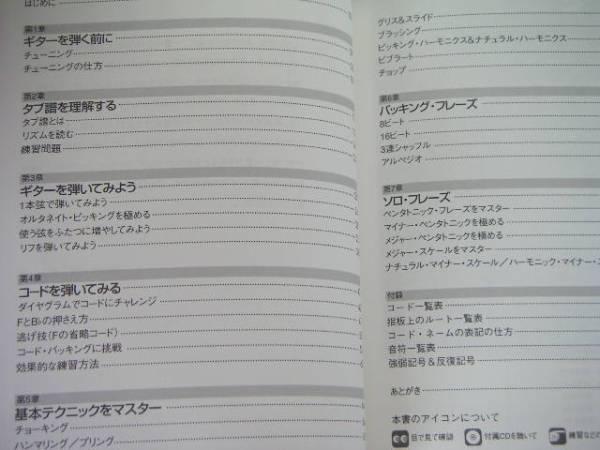 はじめに
第1章
ギターを弾く前に
チューニング
チューニングの仕方
第2章
タブ譜を理解する
タブ譜とは
リズムを読む
練習問題
第3章
ギターを弾いてみよう
1本弦で弾いてみよう
オルタネイト・ピッキングを極める
使う弦をふたつに増やしてみよう
リフを弾いてみよう
第4章
コードを弾いてみる
ダイヤグラムでコードにチャレンジ
FとB♭の押さえ方
逃げ技(Fの省略コード)
コード・バッキングに挑戦
効果的な練習方法
第5章
基本テクニックをマスター
チョーキング
ハンマリング/プリング
グリス&スライド
ブラッシング
ピッキング・ハーモニクス&ナチュラル・ハーモニクス
ビブラート
チョップ
第6章
バッキング・フレーズ
8ビート
16ビート
3連シャッフル
アルペジオ
第7章
ソロ・フレーズ
ペンタトニック・フレーズをマスター
マイナー・ペンタトニックを極める
メジャー・ペンタトニックを極める
メジャー・スケールをマスター
ナチュラル・マイナー・スケール/ハーモニック・マイナー・ス
付録
コード一覧表
指板上のルート一覧表
コード・ネームの表記の仕方
音符一覧表
強弱記号&反復記号
あとがき
本書のアイコンについて
目で見て確認
付属CDを聴いて
練習などの